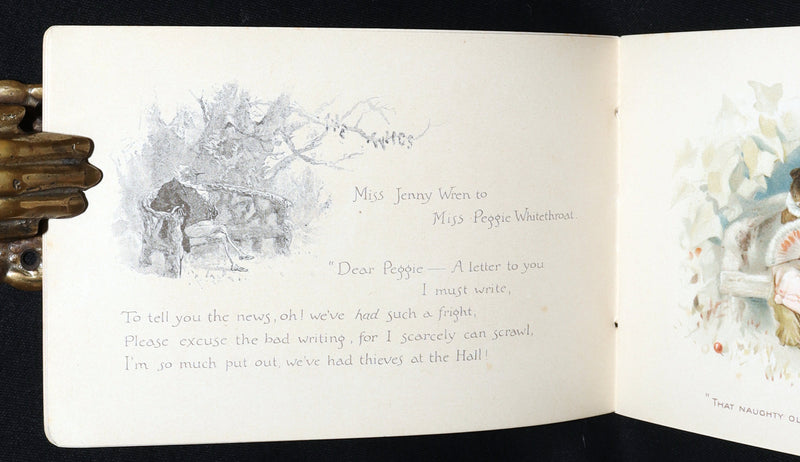 THE TWIGS
Miss Jenny Wren to
Miss Peggie Whitethroat.
"Dear Peggie — A letter to you
I must write,
To tell you the news, oh! we've had such a fright,
Please excuse the bad writing, for I scarcely can scrawl,
I'm so much put out, we've had thieves at the Hall!
"THAT NAUGHTY